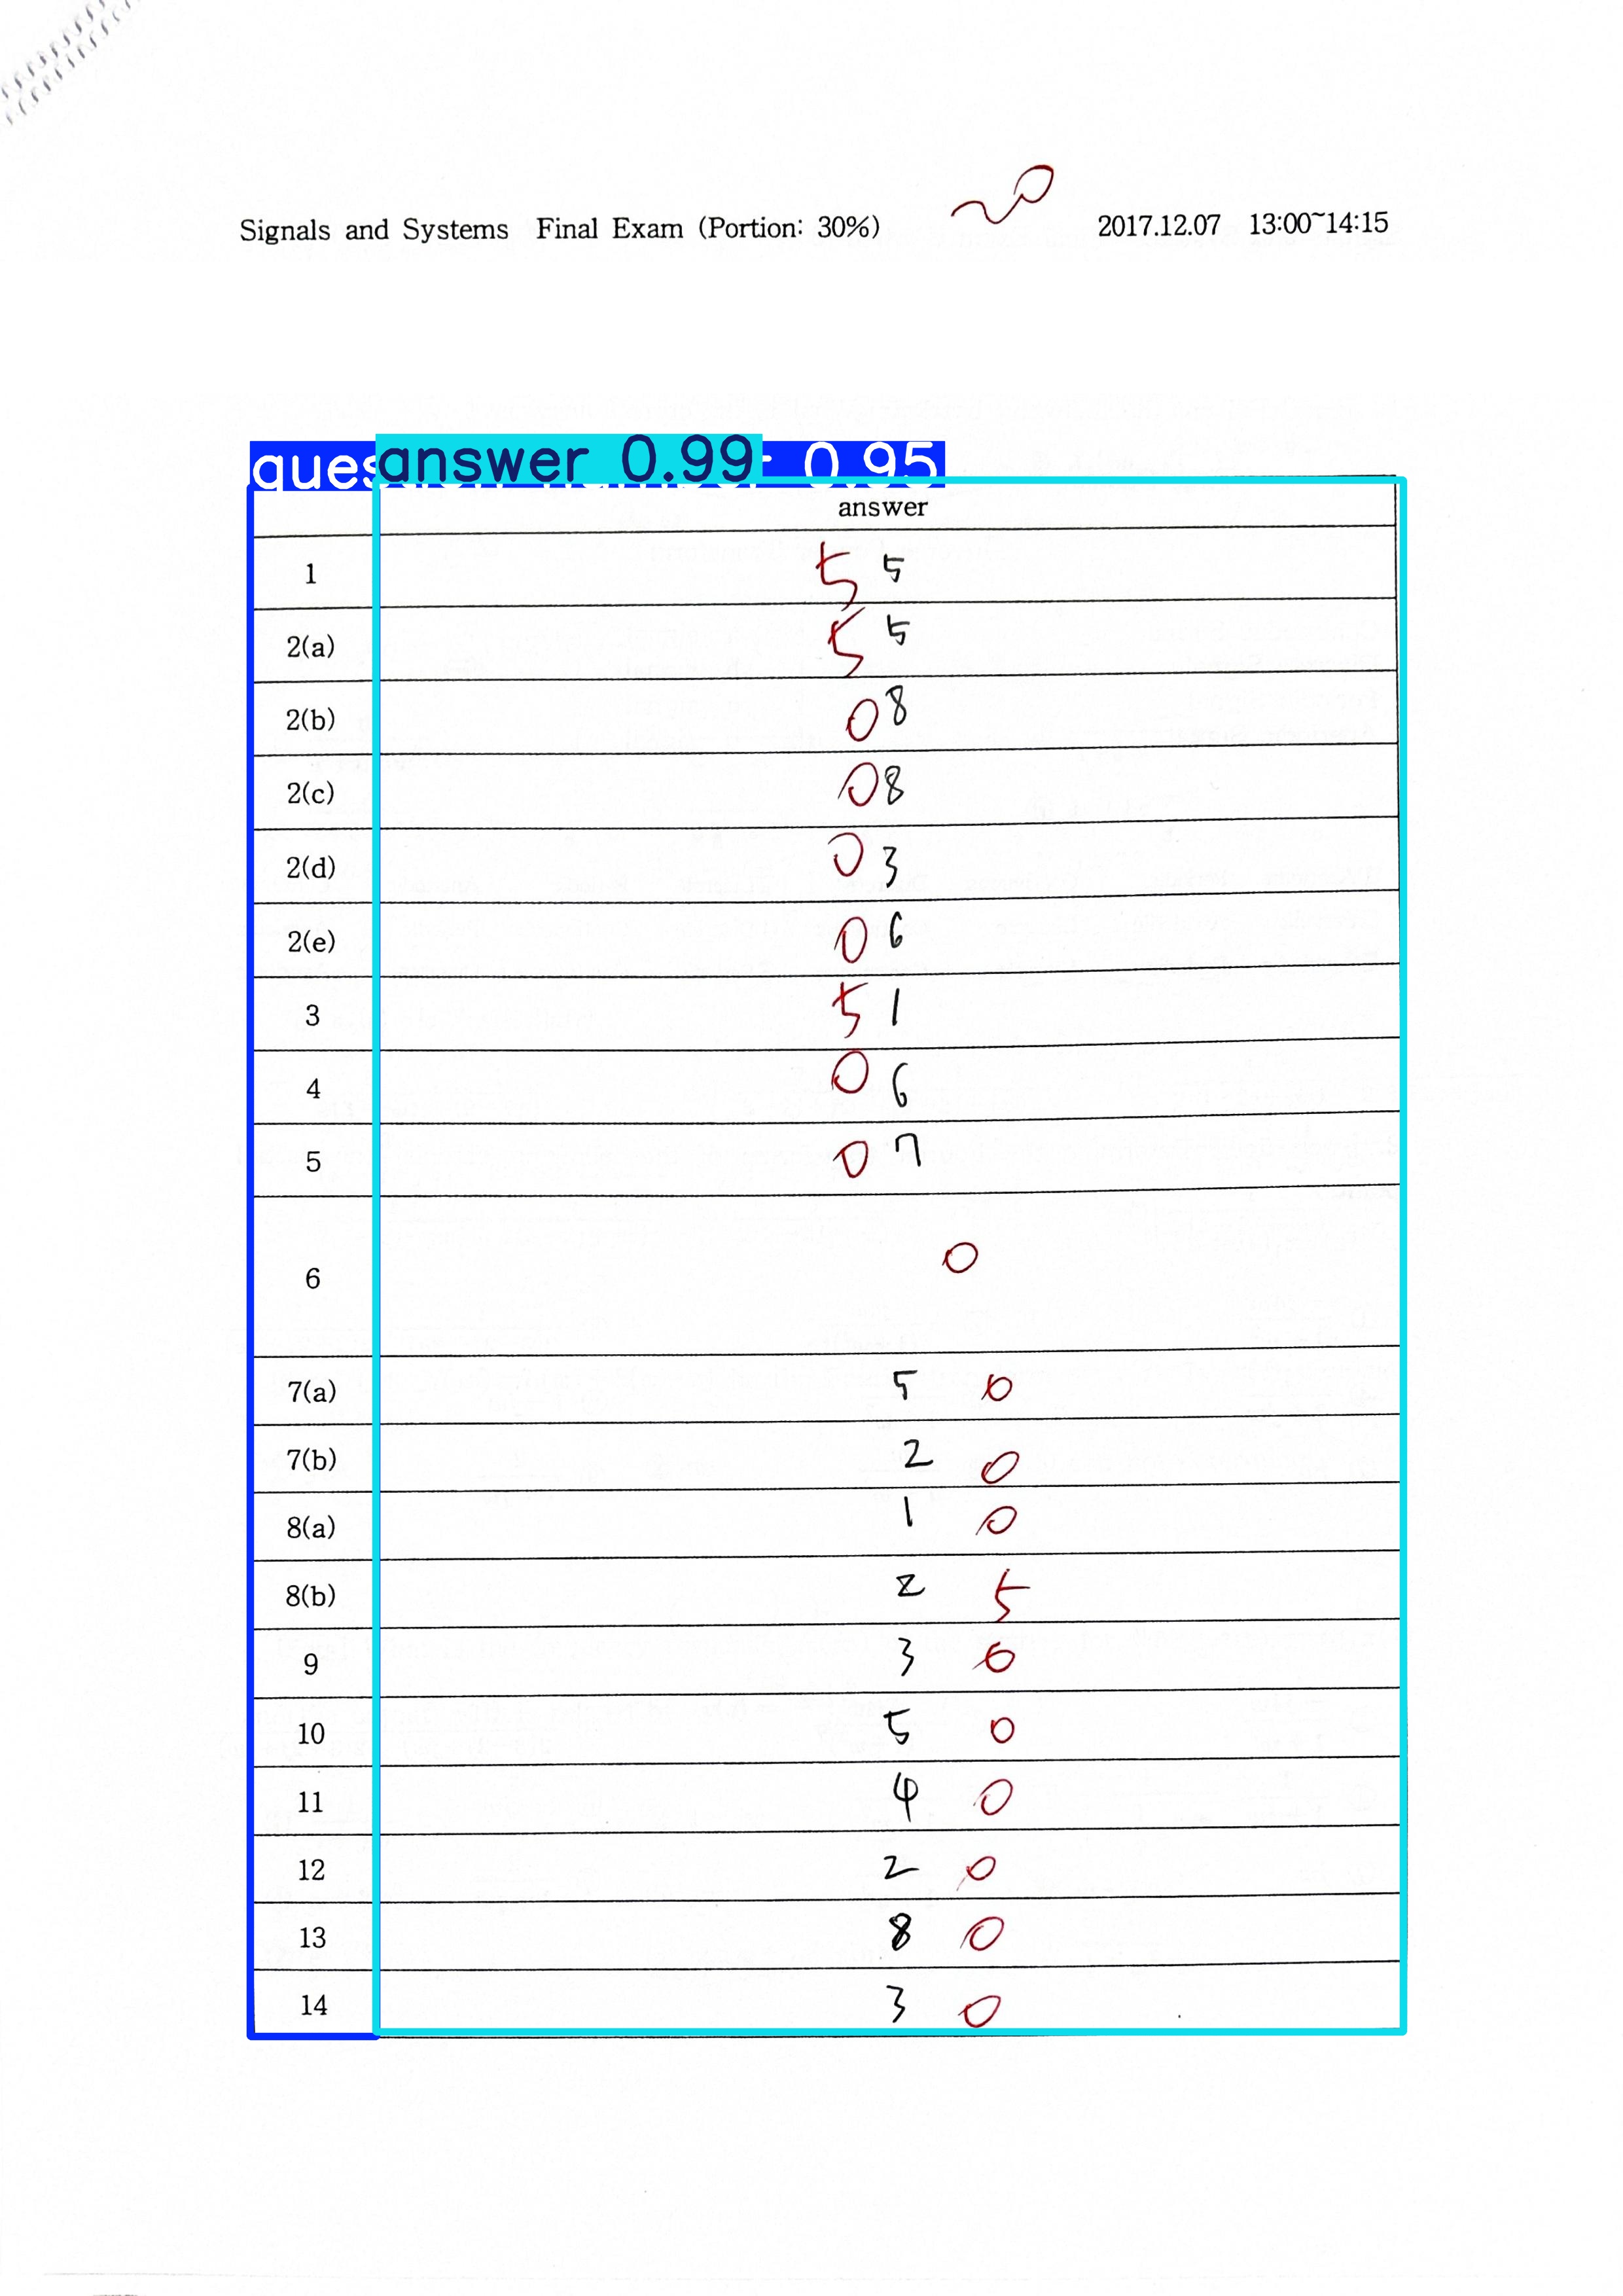 20
Signals and Systems Final Exam (Portion: 30%) 2017.12.07 13:00~14:15
answer 0.99 0.95
answer
1 5 5
2(a) 5 5
2(b) 0 8
2(c) 0 8
2(d) 0 3
2(e) 0 6
3 5 1
4 0 6
5 0 7
6 0
7(a) 5 0
7(b) 2 0
8(a) 1 0
8(b) 2 5
9 3 0
10 5 0
11 4 0
12 2 0
13 8 0
14 3 0